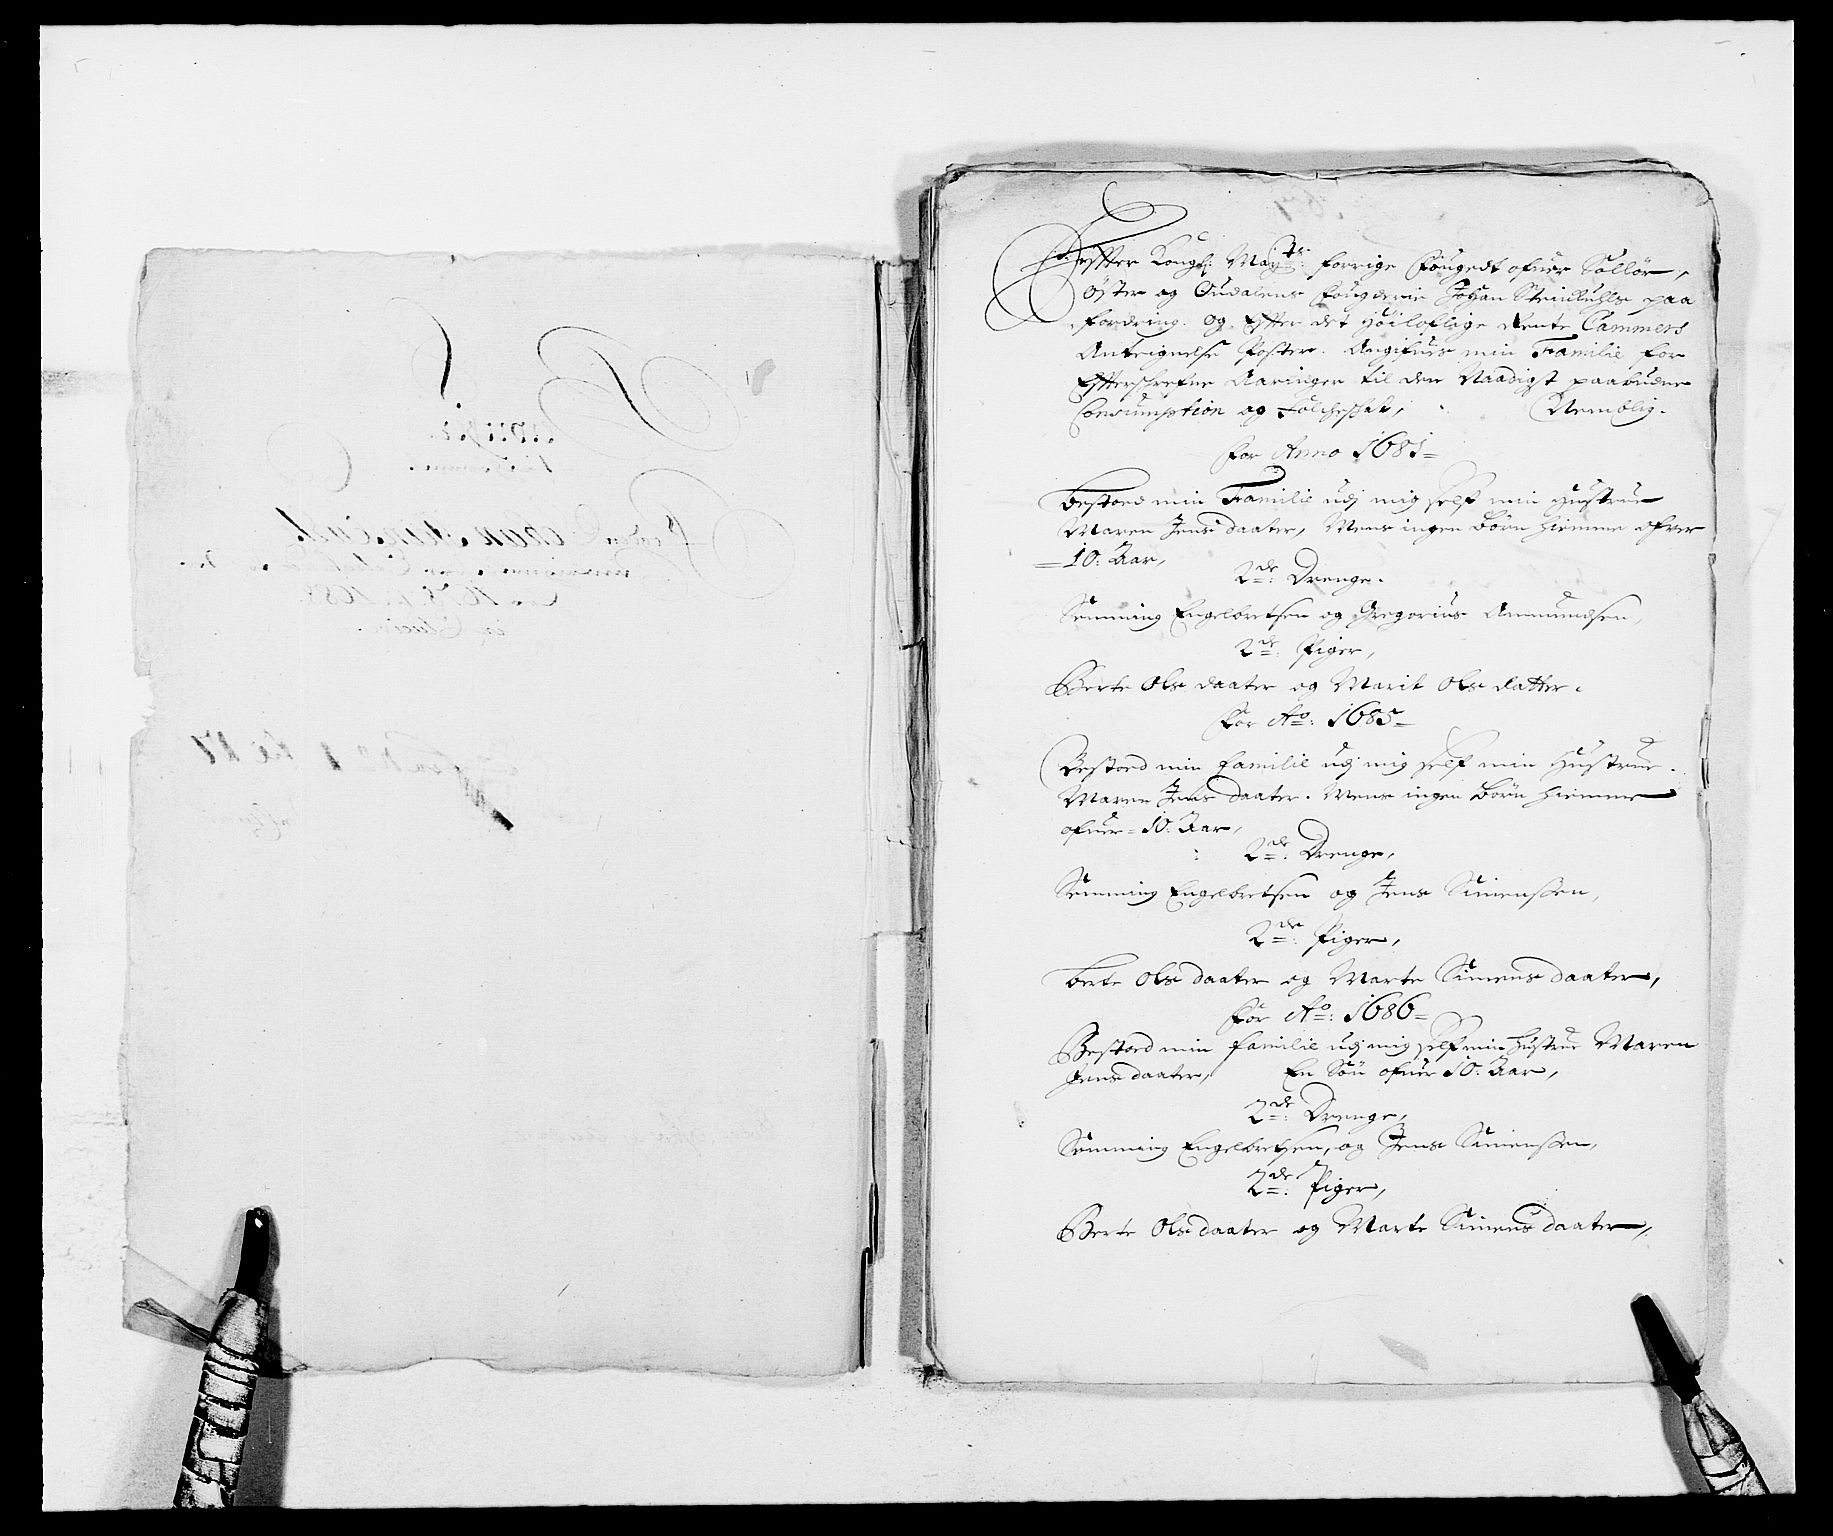 Effter Kongl: May:tz forrige Fougedt ofuer Sollør,
Øster og Oudalens Fougderie Johan Steinkuhls paa
fordring. og Effter det Høiloflige Rente Cammers
Anteignelse Poster. Angifues min Familie for
Effterschrefne Aaringer til den Naadigst paabudne
Consumption og Folcheskat, Nemblig.
For Anno 1681
Bestoed min Familie udj mig self min Hustrue
Maren Jens daater, Mens ingen Børn hiemme ofver
10: Aar,
2de: Drenge.
Semming Engelbretsen og Gregorius Ammundsen,
2de: Piger,
Berte Ols daater og Marit Ols datter.
For Ao: 1685
Bestoed min familie udj mig self min Hustrue.
Maren Jens daater. Mens ingen Børn hiemme
ofuer 10: Aar,
2de: Drenge,
Semming Engelbretsen og Jens Simenssen,
2de: Piger,
Berte Ols daater og Marte Simens daater,
For Ao: 1686
Bestoed min familie udj mig self min Hustrue Maren
Jens daater, En Søn ofuer 10: Aar,
2de: Drenge,
Semming Engelbretsen, og Jens Simenssen,
2de: Piger,
Berte Ols daater og Marte Simens daater,